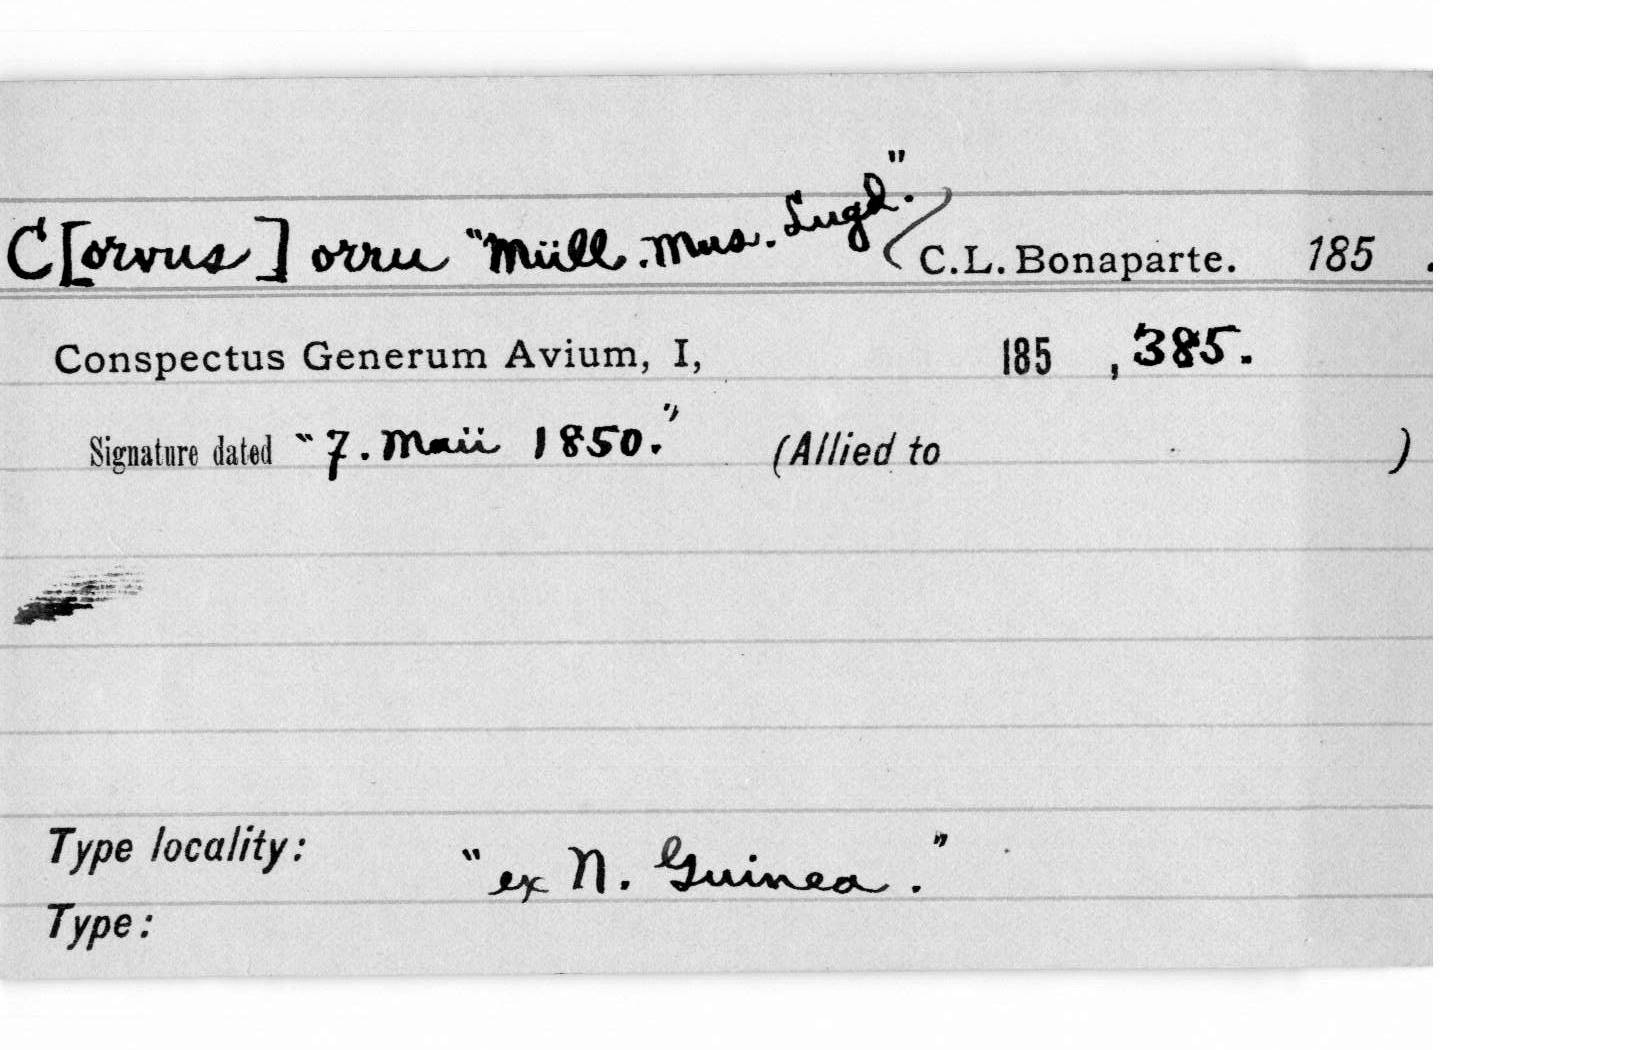 C[orvus] orru "Müll. Mus. Lugd." C.L. Bonaparte. 185 .
Conspectus Generum Avium, I, 185 , 385.
Signature dated "7. Maii 1850." (Allied to )
Type locality: "ex N. Guinea."
Type: